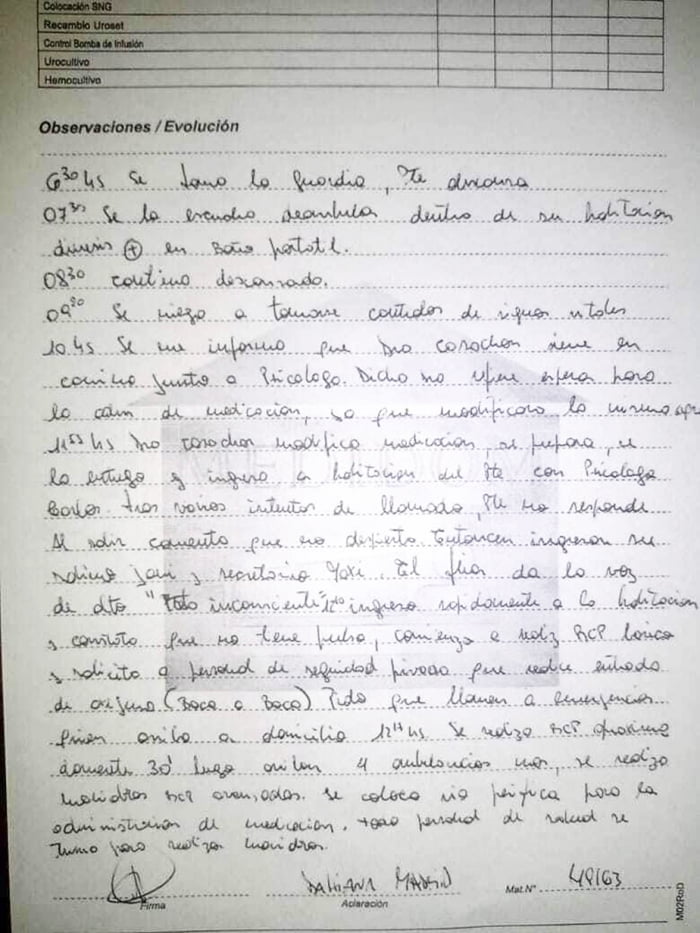 Colocación SNG
Recambio Uroset
Control Bomba de Infusión
Urocultivo
Hemocultivo
Observaciones / Evolución
6³⁰ hs Se toma la guardia, Pte descansa
07³⁰ Se lo escucha deambular dentro de su habitacion
diuresis (+) en Baño portatil.
08³⁰ continua descansado.
09 Se niega a tomarse controles de signos vitales
10 hs Se me informa que Dra cosachov viene en
camino junto a Psicologo. Dicho me espera para
la adm de medicacion, ya que modificara la misma
11 hs Dra cosachov modifica medicacion, se prepara, se
la entrego y ingresa a habitacion del Pte con Psicologo
Carlos. tras varios intentos de llamado, Pte no responde
Al salir comenta que no despierta Entonces ingresan su
sobrino y secretario Maxi. El da la voz
de alto "Esta inconsciente" ingreso rapidamente a la habitacion
y constato que no tiene pulso, comienzo a realiz RCP basica
y solicito a personal de seguridad privada que realice entrada
de oxigeno (Boca a Boca) Pido que llamen a emergencias
quien arriba a domicilio 12 hs Se realiza RCP aproxima
damente 30' luego arriban 4 ambulancias mas, se realiza
maniobras RCP avanzadas. se coloca via periferica para la
administracion de medicacion. todo personal de salud se
turno para realizar maniobras.
DAHIANA MADRID
48163
Firma
Aclaración
Mat.N°
M02RoD